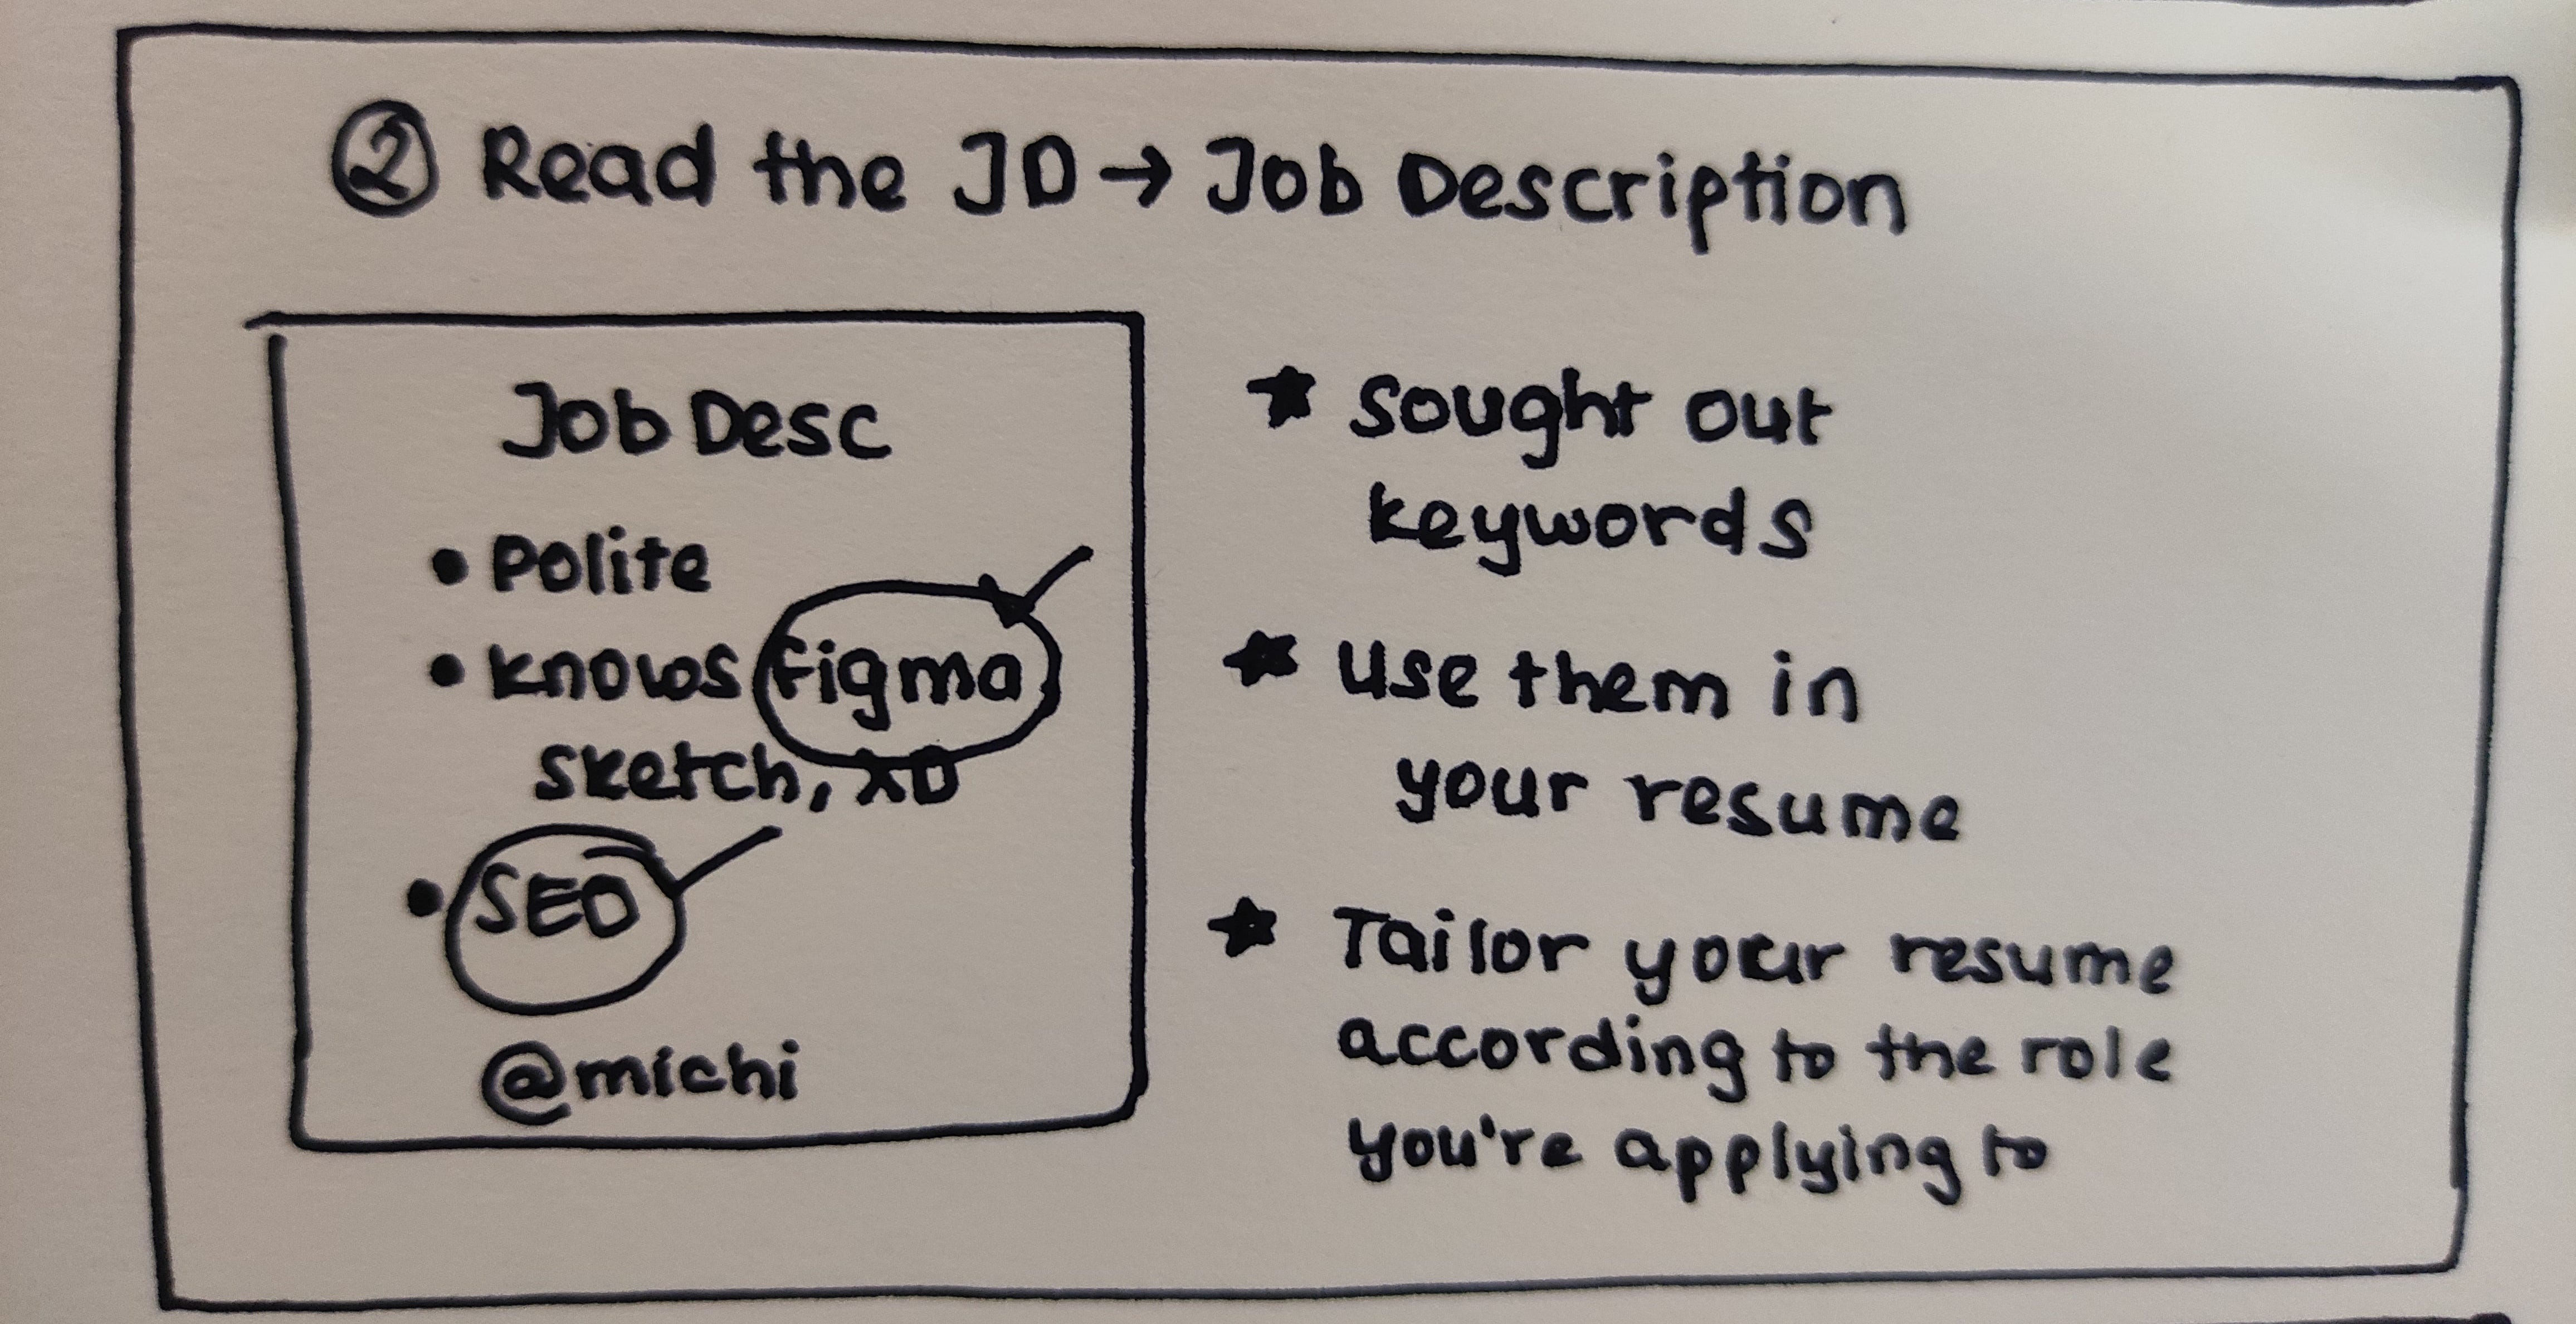 ② Read the JD → Job Description
Job Desc
• Polite
• knows figma
sketch, XD
• SEO
@michi
★ Sought out
keywords
★ Use them in
your resume
★ Tailor your resume
according to the role
you're applying to